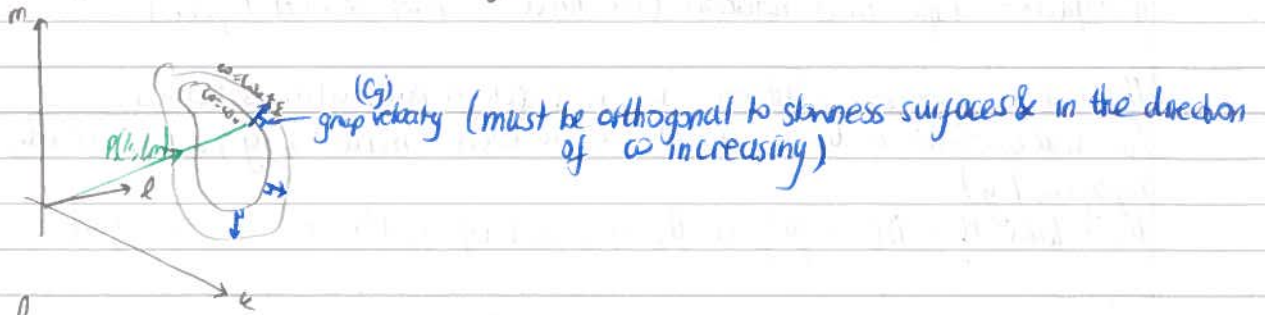 m
ω=ω₀+ε
ω=ω₀
(Cg)
group velocity (must be orthogonal to slowness surfaces & in the direction
of ω increasing)
l
k